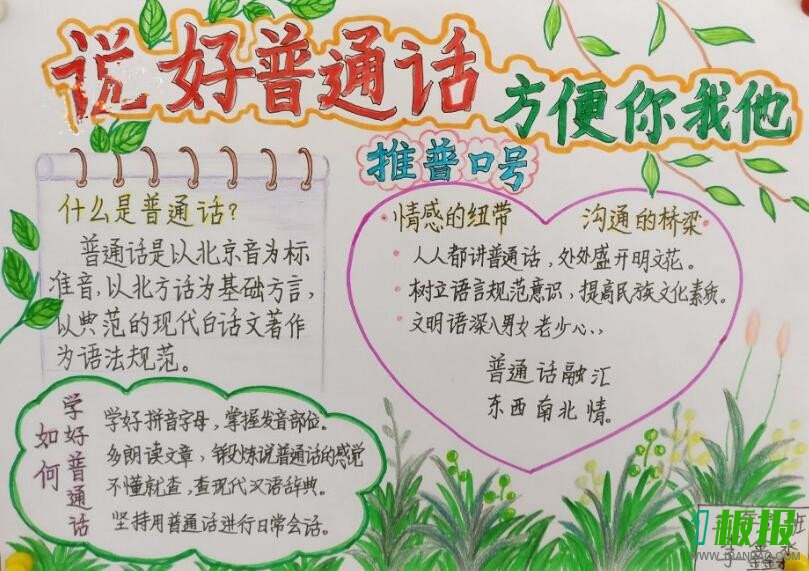 说好普通话
方便你我他
推普口号
什么是普通话?
普通话是以北京音为标
准音,以北方话为基础方言,
以典范的现代白话文著作
为语法规范。
情感的纽带 沟通的桥梁
人人都讲普通话,处处盛开明文花。
树立语言规范意识,提高民族文化素质。
文明语深入男女老少心、,
普通话融汇
东西南北情。
如何
学好普通话
学好拼音字母,掌握发音部位。
多朗读文章,锻炼说普通话的感觉
不懂就查,查现代汉语辞典。
坚持用普通话进行日常会话。
班
1板报